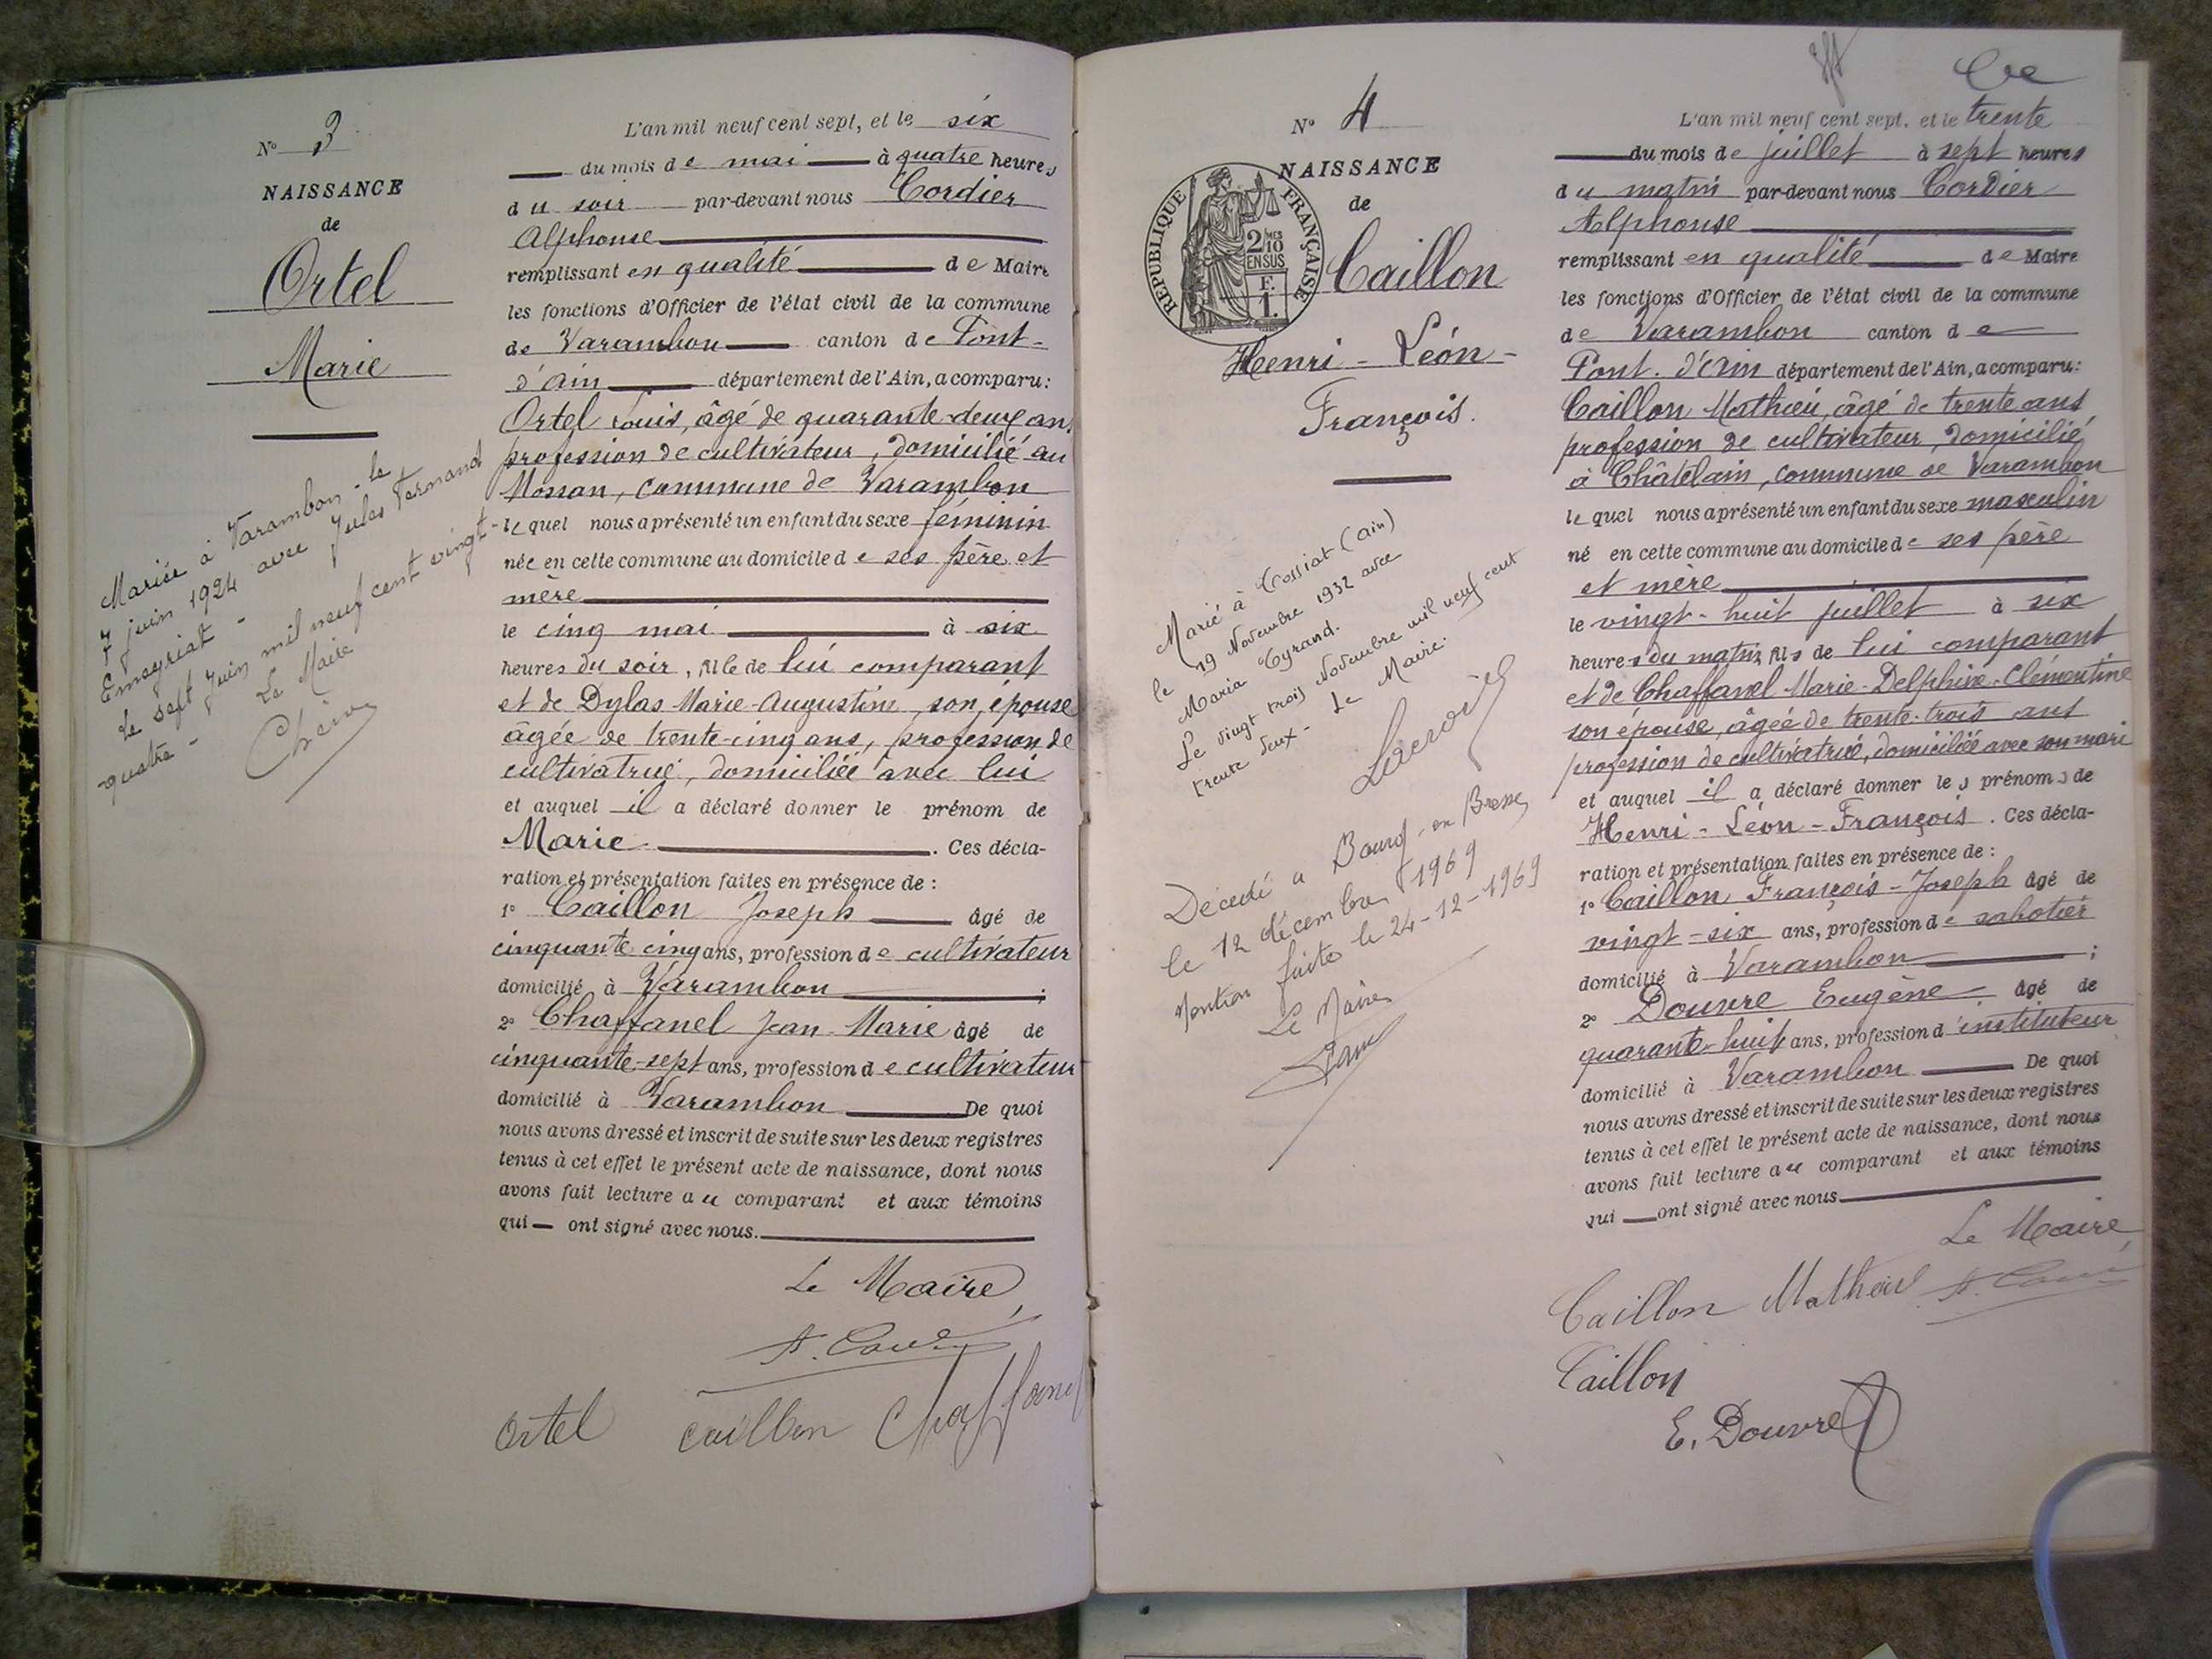 N° 3
NAISSANCE
de
Ortel
Marie
Mariée à Varambon le
7 juin 1924 avec Jules Fernand
Emeyriat -
Le sept juin mil neuf cent vingt-
quatre - Le Maire
L'an mil neuf cent sept, et le six
du mois de mai à quatre heures
du soir par-devant nous Cordier
Alphonse
remplissant en qualité de Maire
les fonctions d'Officier de l'état civil de la commune
de Varambon canton de Pont-
d'Ain département de l'Ain, a comparu:
Ortel Louis, âgé de quarante-deux ans,
profession de cultivateur, domicilié au
commune de Varambon
lequel nous a présenté un enfant du sexe féminin
née en cette commune au domicile de ses père et
mère
le cinq mai à six
heures du soir, fille de lui comparant
et de Dylas Marie-Augustine, son épouse
âgée de trente-cinq ans, profession de
cultivatrice, domiciliée avec lui
et auquel il a déclaré donner le prénom de
Marie. Ces décla-
ration et présentation faites en présence de :
1° Caillon Joseph âgé de
cinquante cinq ans, profession de cultivateur
domicilié à Varambon ;
2° Chaffanel Jean-Marie âgé de
cinquante-sept ans, profession de cultivateur
domicilié à Varambon De quoi
nous avons dressé et inscrit de suite sur les deux registres
tenus à cet effet le présent acte de naissance, dont nous
avons fait lecture au comparant et aux témoins
qui — ont signé avec nous.
Le Maire,
Ortel Caillon Chaffanel
N° 4
NAISSANCE
de
REPUBLIQUE FRANÇAISE
2/10 MES
EN SUS
F.
1.
Caillon
Henri-Léon-
François.
Marié à Tossiat (Ain)
le 19 Novembre 1932 avec
Maria Cyrand.
Le vingt trois Novembre mil neuf cent
trente deux - Le Maire.
Lacroix
Décédé à Bourg-en-Bresse
le 12 décembre 1969
Mention faite le 24-12-1969
Le Maire
L'an mil neuf cent sept, et le trente
du mois de juillet à sept heures
du matin par-devant nous Cordier
Alphonse
remplissant en qualité de Maire
les fonctions d'Officier de l'état civil de la commune
de Varambon canton de
Pont-d'Ain département de l'Ain, a comparu:
Caillon Mathieu, âgé de trente ans
profession de cultivateur, domicilié
à Châtelain, commune de Varambon
lequel nous a présenté un enfant du sexe masculin
né en cette commune au domicile de ses père
et mère
le vingt-huit juillet à six
heures du matin, fils de lui comparant
et de Chaffanel Marie-Delphine-Clémentine
son épouse, âgée de trente-trois ans
profession de cultivatrice, domiciliée avec son mari
et auquel il a déclaré donner les prénoms de
Henri-Léon-François. Ces décla-
ration et présentation faites en présence de :
1° Caillon François-Joseph âgé de
vingt-six ans, profession de sabotier
domicilié à Varambon ;
2° Douvre Eugène âgé de
quarante-huit ans, profession d'instituteur
domicilié à Varambon De quoi
nous avons dressé et inscrit de suite sur les deux registres
tenus à cet effet le présent acte de naissance, dont nous
avons fait lecture au comparant et aux témoins
qui — ont signé avec nous
Le Maire,
Caillon Mathieu
Caillon
E. Douvre